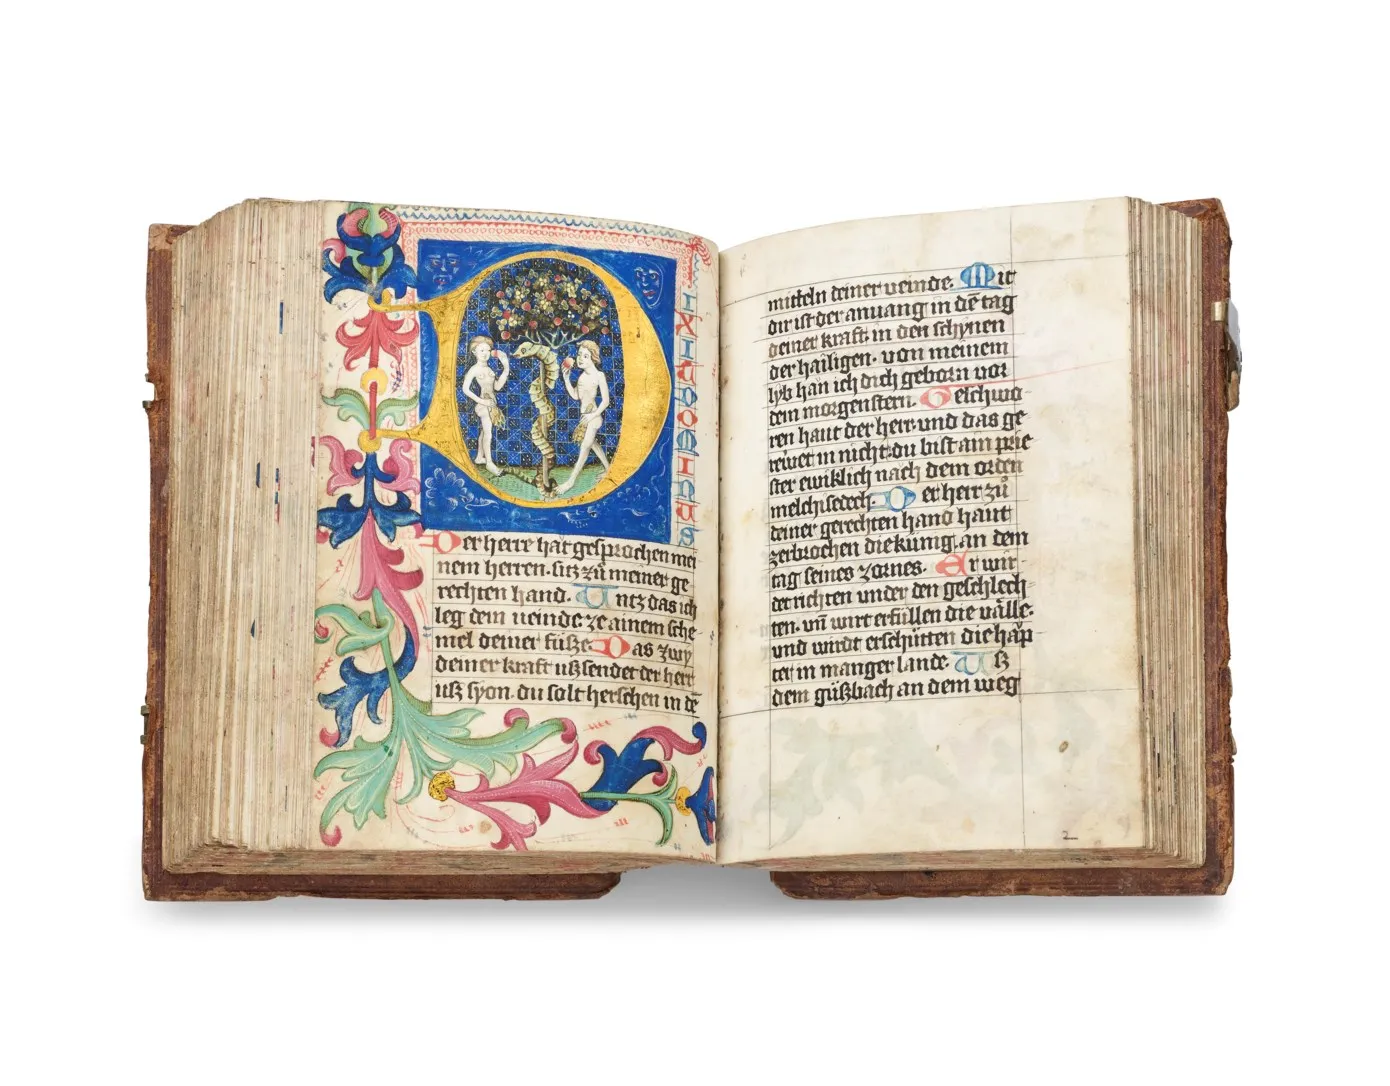 D
IXIT DOMINUS
Der herre hat gesprochen mei
nem herren. sitz zů meiner ge
rechten hand. Untz das ich
leg dein veinde ze ainem sche
mel deiner füsse. Das zwy
deiner kraft ußsendet der herr
uß syon. du solt herschen in dē
mitteln deiner veinde. Mit
dir ist der anuang in dē tag
deiner kraft. in den schynen
der hailigen. von meinem
lyb han ich dich geborn vor
dem morgenstern. Geschwo
ren haut der herr. und das ge
rewet in nicht. du bist ain prie
ster ewiklich nach dem orden
melchisedech. Der herr zů
deiner gerechten hand haut
zerbrochen die kunig. an dem
tag seines zornes. Er wirt
der richten under den geschlech
ten. vn̄ wirt erfüllen die välle.
und wirdt erschütten die häp
ter in manger lande. Uß
dem güßbach an dem weg
2